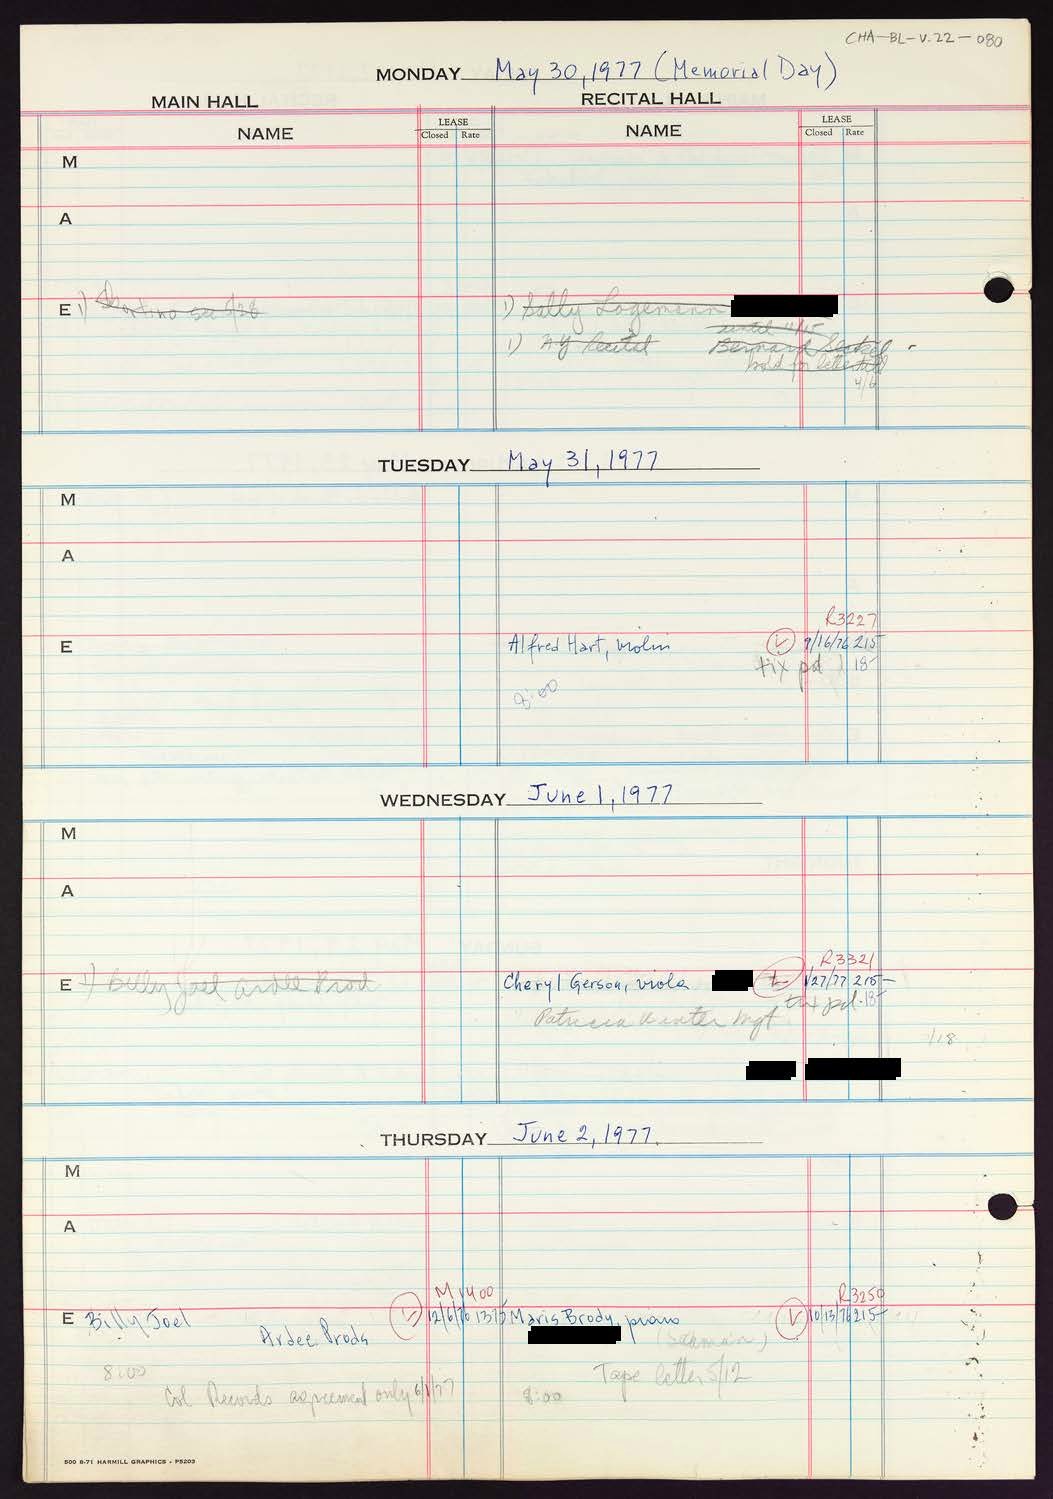 CHA-BL-V.22-080
MONDAY May 30, 1977 (Memorial Day)
MAIN HALL RECITAL HALL
NAME LEASE Closed Rate NAME LEASE Closed Rate
M
A
E 1) see 5/28 1) Sally Logemann
until 4/15
1) NY Recital Bernard
hold for letter till
4/6
TUESDAY May 31, 1977
M
A
R3227
E Alfred Hart, violin 9/16/76 215
tix pd 18-
8:00
WEDNESDAY June 1, 1977
M
A
R3321
E 1) Billy Joel Ardee Prod Cheryl Gerson, viola 1/27/77 215-
tix pd. 18-
Patricia Winter Mgt
1/18
THURSDAY June 2, 1977
M
A
M1400 R3250
E Billy Joel 12/6/76 1375 Maris Brody, piano 10/13/76 215-
Ardee Prods
8:00 Tape letter 5/12
Col Records agreement only 6/1/77 8:00
500 8-71 HARMILL GRAPHICS - P5203